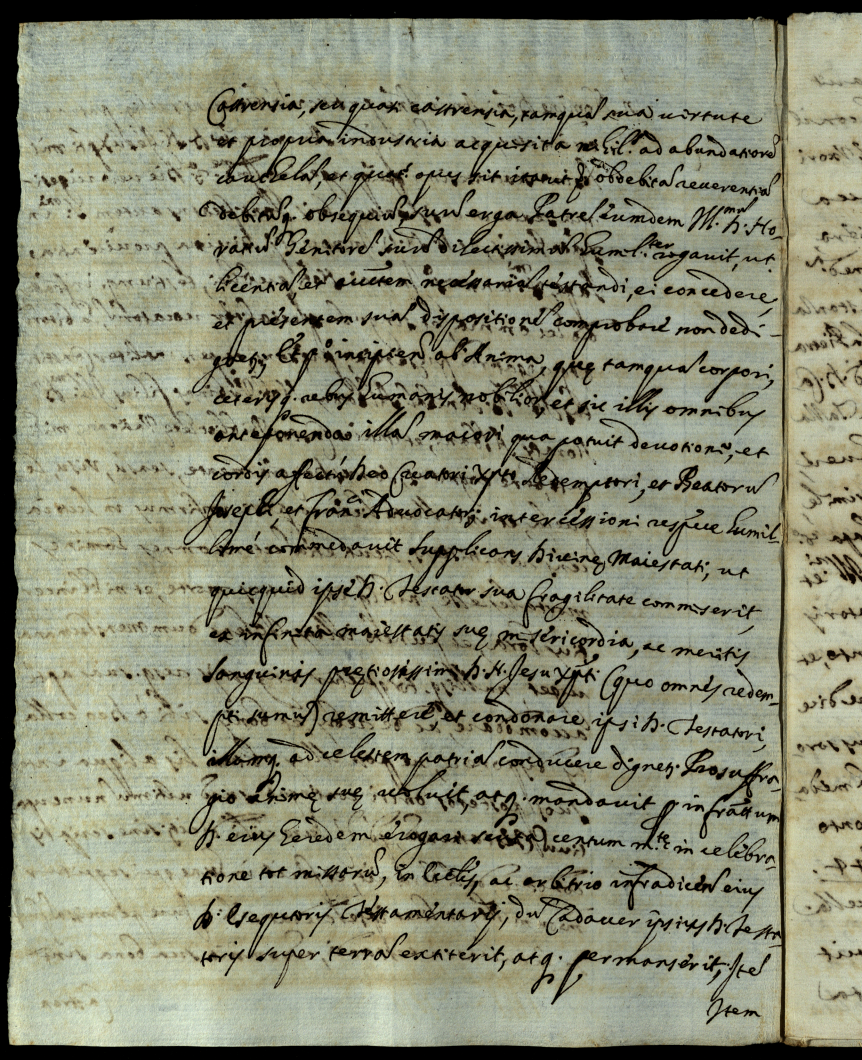 Castrensia, seu quasi castrensia, tamquã sua uirtute
et propria industria acquisita nihil. ad abundatiorẽ
cauthelã, et quatꝰ opus sit obdebitã reuerentiã
debitũq. obsequiũ suũ erga Patrẽ eumdem Ill.mũ D. Ho-
ratiũ Genitorẽ suũ dilectissimũ humil.ter rogauit, ut
licentiã et necessariã testandi, ei concedere,
et presentem suã dispositionẽ comprobare non dedi-
gnetꝰ Et pº incipiens ab Anima, quę tamquã corpori,
ceterisq. rebus humanis nobilior, et sic illis omnibus
anteponenda illã maiori qua potuit deuotione, et
cordis affectu Deo Creatori Xpto Redemptori, et Beatorũ
Joseph, et Franci Aduocatorũ intercessioni respue humil-
limé comẽdauit supplicans Diuinę Maiestati, ut
quicquid ipse D. Testator sua fragilitate commiserit,
ex infinita maiestatis suę misericordia, ac meritis
Sanguinis pretiosissimi D. N. Jesu Xpti (quo omnes redem-
pti sumus) remittere et condonare ipsi D. Testatori,
illamq. ad celestem patriã conducere dignetꝰ. Pro suffra-
gio Animę suę uoluit, atq. mandauit ꝑ infrãttum
D. eius heredem erogari scuta centum m.tę in celebra-
tione tot missarũ, in Eccľijs, ac arbitrio infradicẽđ eius
D. Exequutoris Testamentarij, dũ Cadauer ipsius D. Testa-
toris super terrã extiterit, atq. permanserit, Itẽ
Item